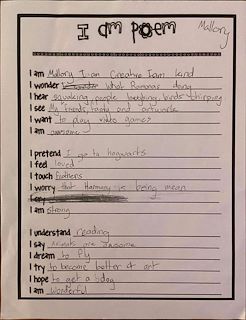 I am poem
Mallory
I am Mallory I am Creative I am kind
I wonder What Ramona's doing
I hear squawking people breathing birds chirping
I see My friends family and artwork
I want to play video games
I am awesome
I pretend I go to hogwarts
I feel loved
I touch Feathers
I worry that Harmony is being mean
I cry
I am strong
I understand reading
I say Animals are awesome
I dream to fly
I try to become better at art
I hope to get a dog
I am Wonderful